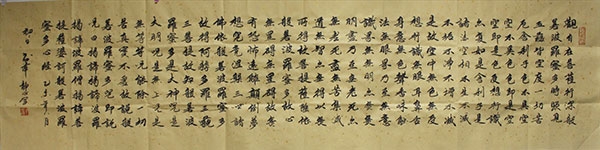 觀自在菩薩行深般
若波羅蜜多時照見
五蘊皆空度一切苦
厄舍利子色不異空
空不異色色即是空
空即是色受想行識
亦復如是舍利子是
諸法空相不生不滅
不垢不淨不增不減
是故空中無色無受
想行識無眼耳鼻舌
身意無色聲香味觸
法無眼界乃至無意
識界無無明亦無無
明盡乃至無老死亦
無老死盡無苦集滅
道無智亦無得以無
所得故菩提薩埵依
般若波羅蜜多故心
無罣礙無罣礙故無
有恐怖遠離顛倒夢
想究竟涅槃三世諸
佛依般若波羅蜜多
故得阿耨多羅三藐
三菩提故知般若波
羅蜜多是大神咒是
大明咒是無上咒是
無等等咒能除一切
苦真實不虛故說般
若波羅蜜多咒即說
咒曰揭諦揭諦波羅
揭諦波羅僧揭諦菩
提薩婆訶般若波羅
蜜多心經